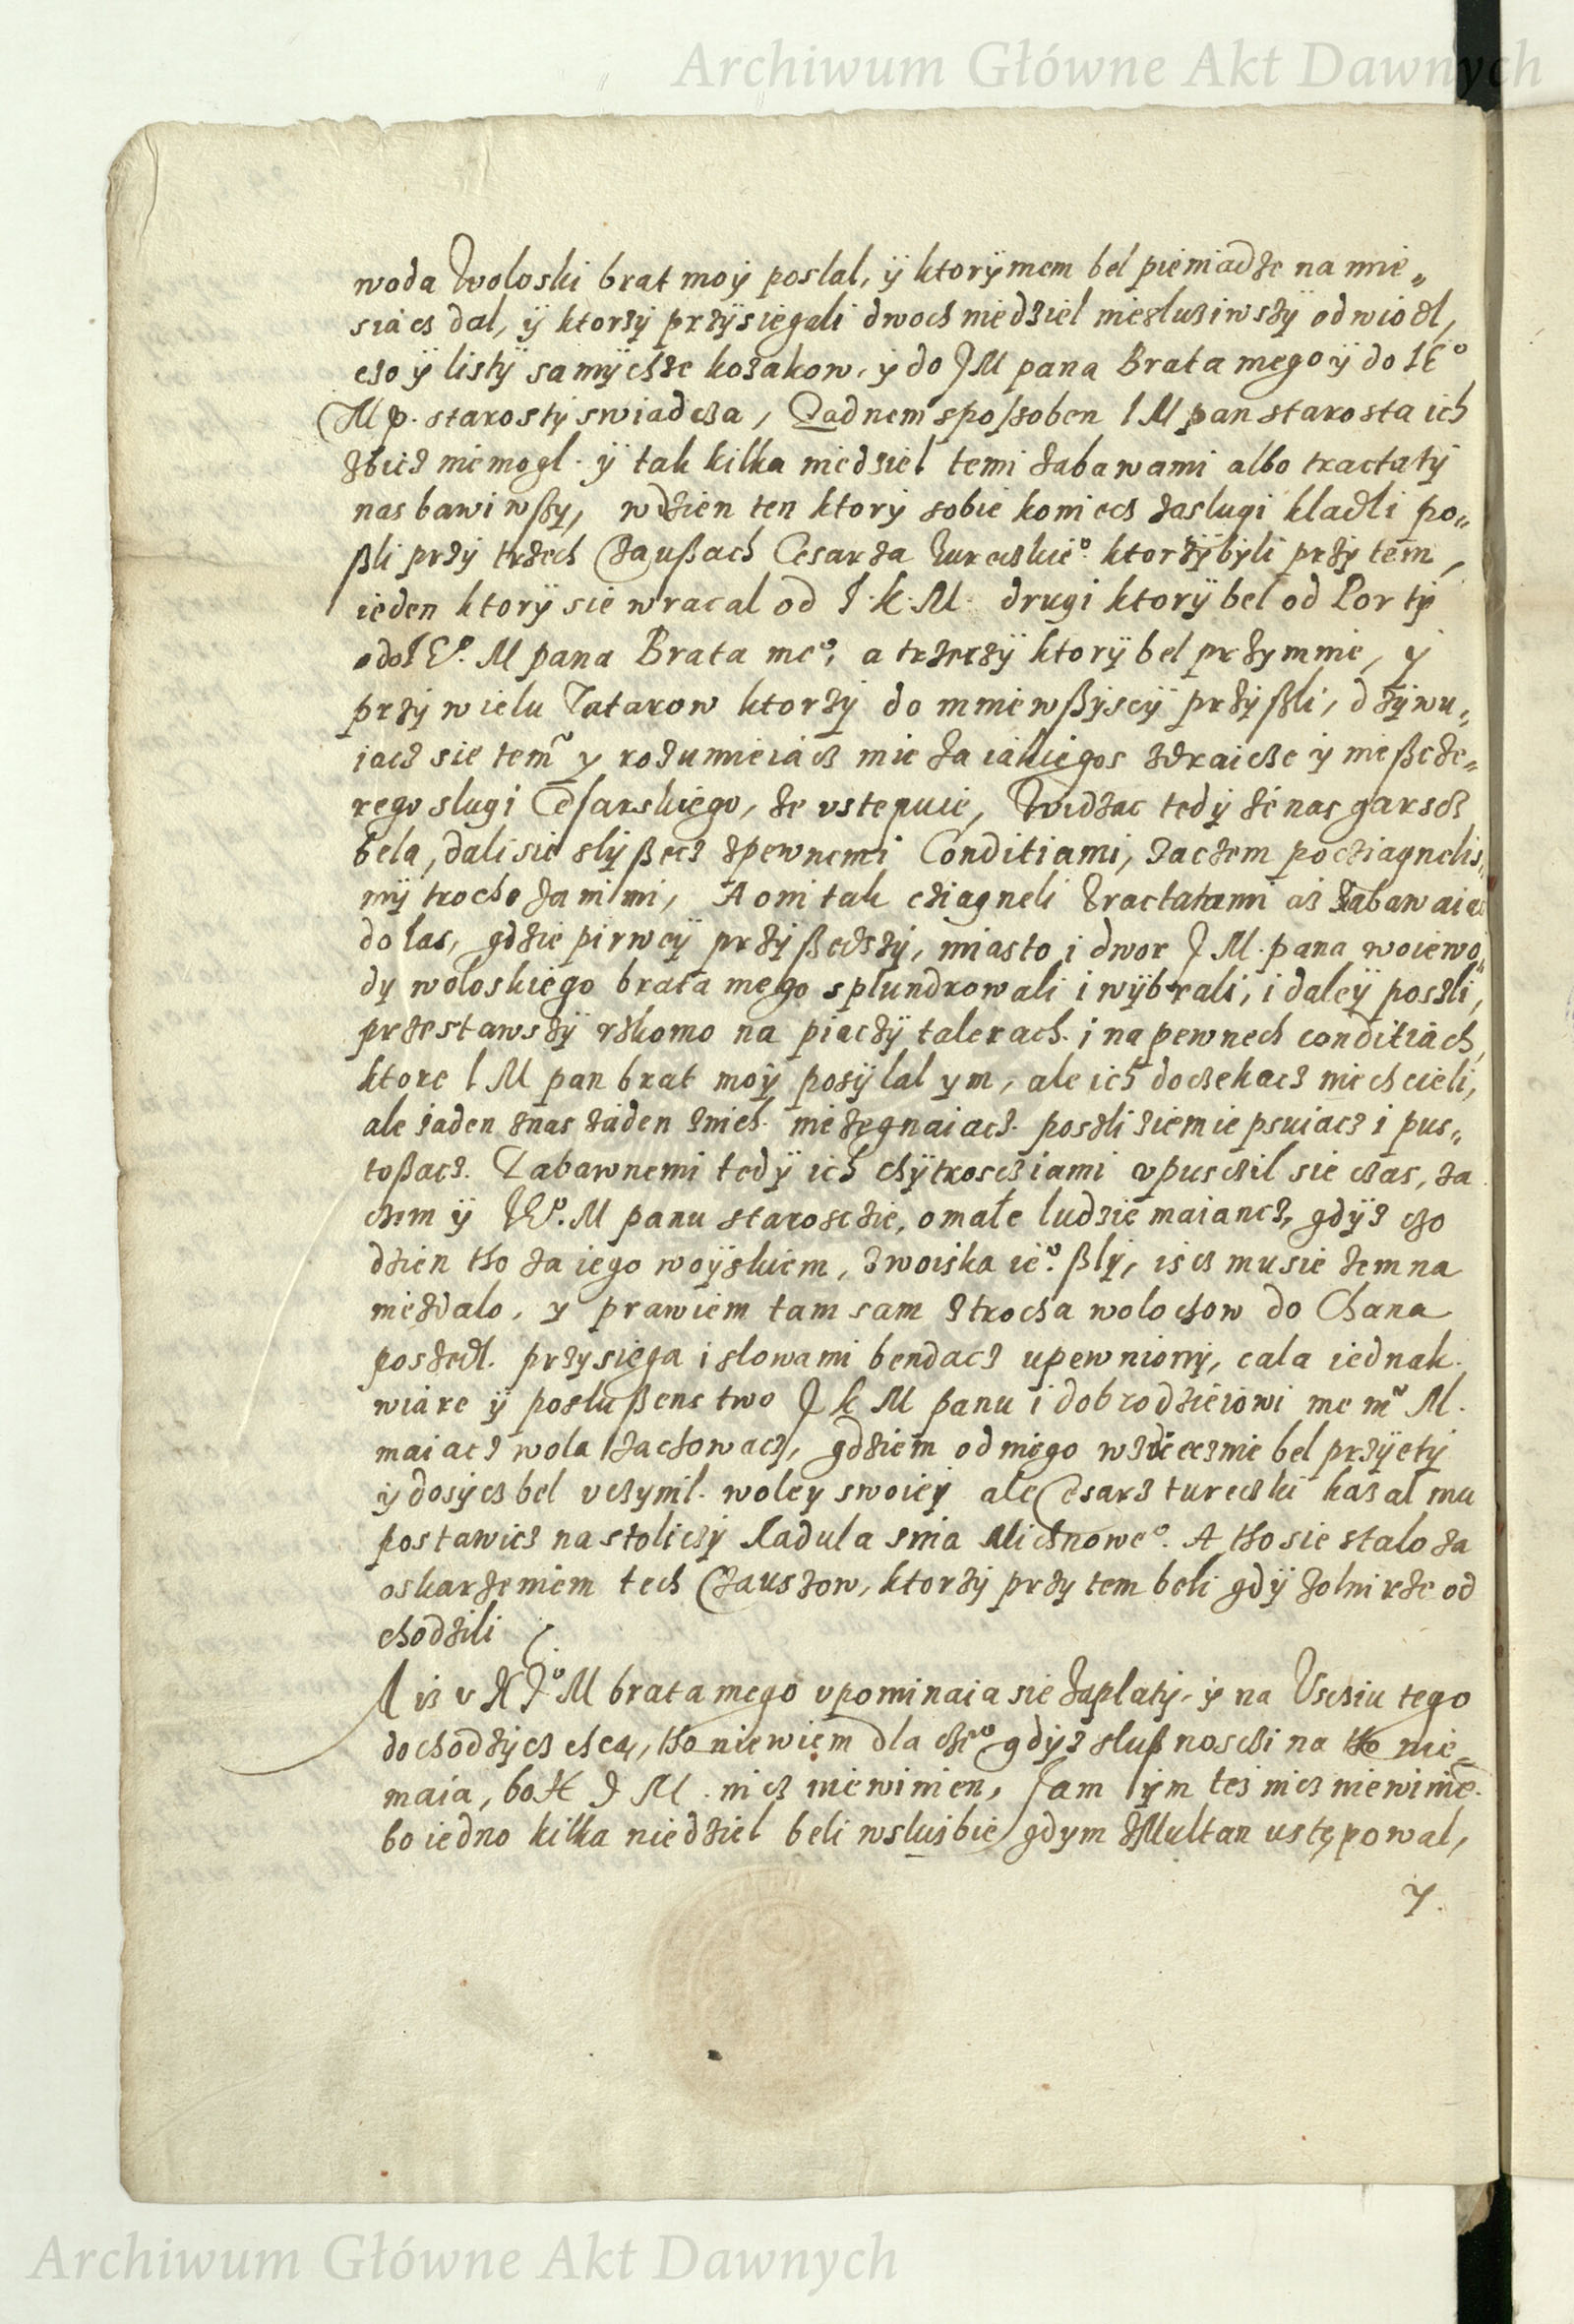 Archiwum Główne Akt Dawnych
woda Woloski brat moÿ poslal, ÿ ktorÿmem bel pieniadze na mie„
siacz dal, ÿ ktorzÿ przÿsiegali dwoch niedziel niezluziwszÿ odwiodl,
czo ÿ listÿ samÿchze kozakow, ÿ do J M pana Brata mego ÿ do IEº
M p. starostÿ swiadcza, Zadnem sposzoben I M pan starosta ich
zbicz niemogl. ÿ tak kilka niedziel temi zabawami albo tractatÿ
nas bawiwßÿ, wdzien ten ktorÿ sobie koniecz zaslugi kladli po„
ßli przÿ trzech Czaußach Cesarza Tureczkieº. ktorzÿ bÿli przÿ tem,
ieden ktorÿ sie wracal od J. K. M. drugi ktorÿ bel od Portÿ
odoJEº. M pana Brata meº, a trzeczÿ ktorÿ bel przÿmnie, ÿ
przÿ wielu Tatarow ktorzÿ do mnie wßÿscÿ przÿßli, dzÿwu„
iacz sie tem̃ y rozumieiacz mie za iakiegos zdraicze ÿ nießcze„
rego slugi Cesarskiego, ze vstepuie, Widzac tedÿ ze nas garscz
bela, dali sie slÿßecz zpewnemi Conditiami, zaczem pocziagnelis„
mÿ troche zanimi, A oni tak cziagneli tractatami az zabawaiac
do Ias, gdzie pirweÿ przÿßedszÿ, miasto i dwor J M. pana woiewo„
dy woloskiego brata mego splundrowali i wÿbrali, i daleÿ poszli,
przestawszÿ rzkomo na piaczÿ talerach. i na pewnech conditiach,
ktore I M pan brat moÿ posÿlal ym, ale ich doczekacz niechcieli,
ale zaden znas zaden znich. niezegnaiacz. poszli ziemie psuiacz i pus„
toßacz. Zabawnemi tedÿ ich chÿtrosciami opusczil sie czas, za
czem ÿ JEº. M panu starosczie, omałe ludzie maiancz, gdÿz czo
dzien tho za iego woÿskiem, zwoiska ieº. ßlÿ, iscz musie zemna
niezdalo, y prawiem tam sam ztrocha wolochow do Chana
poszedl. przysiega i slowami bendacz upewnionÿ, cala iednak.
wiare ÿ posłußenstwo J K M panu i dobrodzieiowi mem̃ M.
maiacz wola zachowacz, gdziem od niego wdziecznie bel przÿetÿ
ÿ dosÿcz bel vczynil. woley swoieÿ ale Cesarz tureczki kazal mu
postawicz na stoliczÿ Radula sÿna Michnoweº. A tho sie stalo za
oskarzeniem tech Czauszow, ktorzÿ przy tem beli gdÿ zolnirze od
chodzili
A iz v H Jº M brata mego vpominaia sie zaplatÿ, ÿ na Vscziu tego
dochodzÿcz chcą, tho niewiem dla czeº gdÿz slußnosczi na tho nie„
maia, bo H J M. nicz niewinien, Jam ÿm tes nicz niewinie̅.
bo iedno kilka niedziel beli wsluzbie gdym zMultan ustępowal,
y.
Archiwum Główne Akt Dawnych